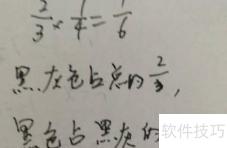 2/3 × 1/4 = 1/6
黑、灰色占总的 2/3,
黑色占黑灰的
软件技巧